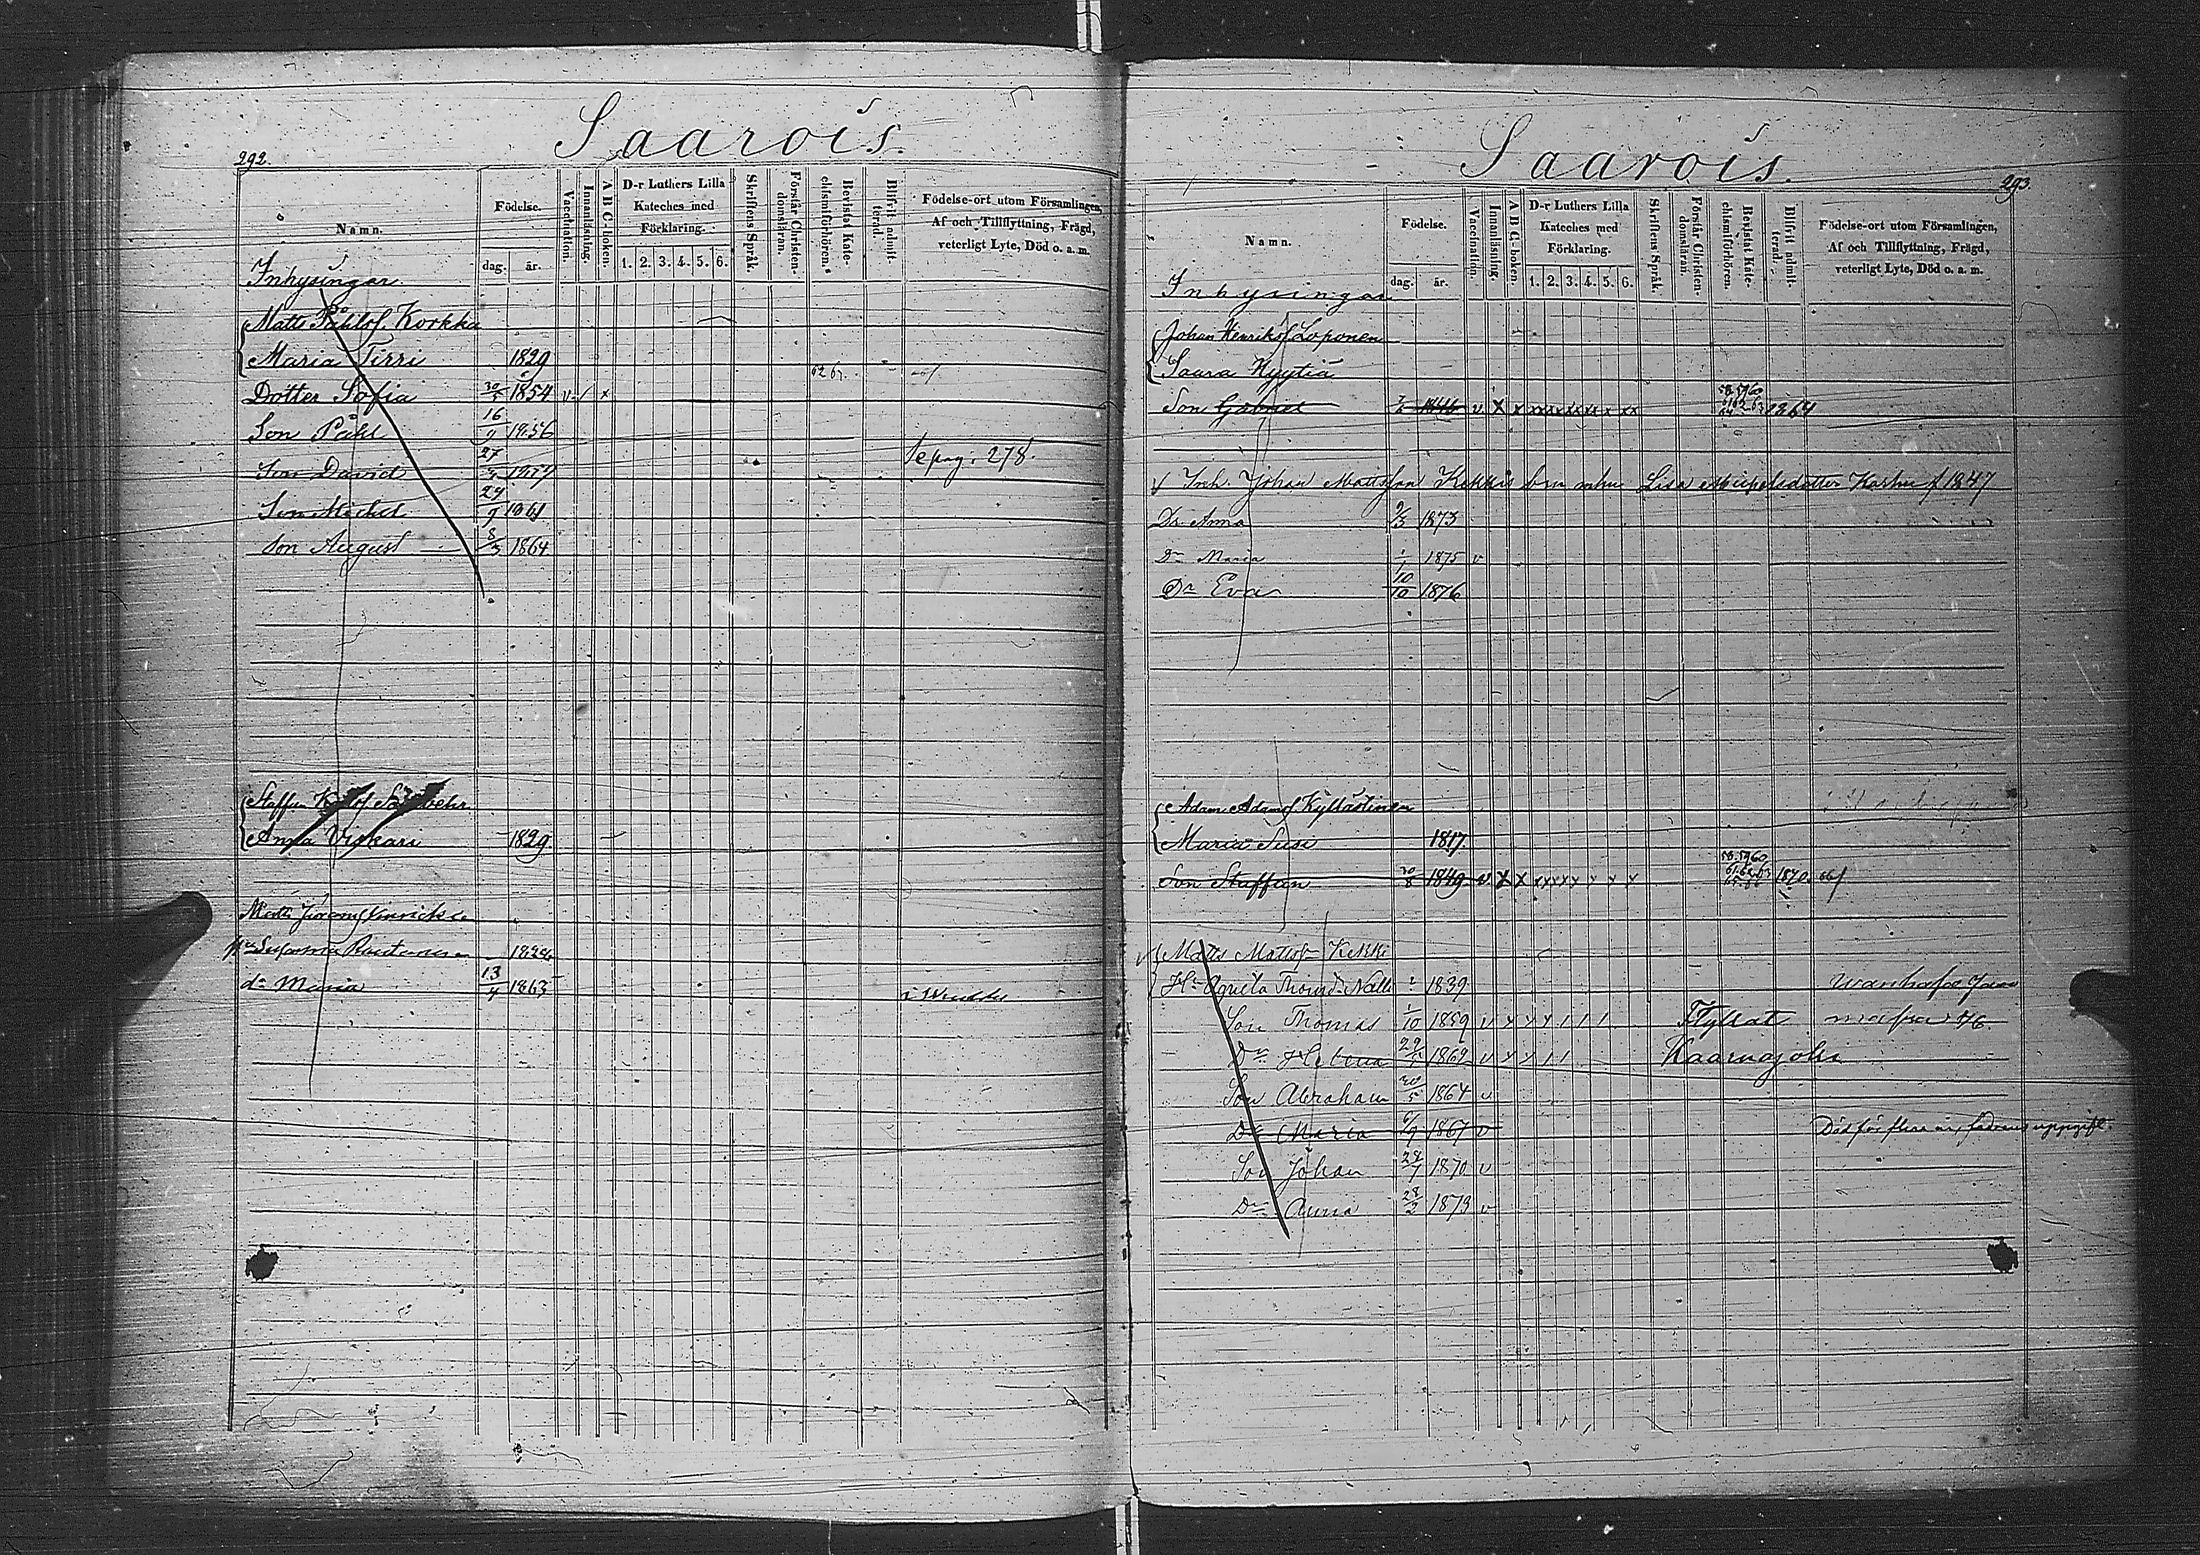 292.
Saarois.
Namn.
Födelse.
dag.
år.
Vaccination.
Innanläsning.
ABC-boken.
D-r Luthers Lilla
Kateches med
Förklaring.
1. 2. 3. 4. 5. 6.
Skriftens Språk.
Förstår Christen-
domsläran.
Bevistat Kate-
chismiförhören.
Blifvit admit-
terad.
Födelse-ort utom Församlingen,
Af och Tillflyttning, Frägd,
veterligt Lyte, Död o. a. m.
Inhysingar
Matts Påhlsf. Korkka
Maria Tirri 1829
Dotter Sofia 1854 v x
Son Påhl 16/9 1856
Son David 27
Son Michel 24/9 1861
Son August 8/3 1864
Se pag. 278.
Staffan
Anna 1829
Matts
Susanna
dr Maria 13/4 1863
293.
Saarois.
Namn.
Födelse.
dag.
år.
Vaccination.
Innanläsning.
ABC-boken.
D-r Luthers Lilla
Kateches med
Förklaring.
1. 2. 3. 4. 5. 6.
Skriftens Språk.
Förstår Christen-
domsläran.
Bevistat Kate-
chismiförhören.
Blifvit admit-
terad.
Födelse-ort utom Församlingen,
Af och Tillflyttning, Frägd,
veterligt Lyte, Död o. a. m.
Inhysingar
Johan Henriksf Loponen
Laura Hyytiä
Son Gabriel v x x xxxxxxxx x xx
v Inh. Johan Mattsson Kekki Lisa Karhu f 1847
Dr Anna 9/3 1873
Dr Maria 1/1 1875 v
Dr Eva 10/10 1876
Adam Adamsf Kyllästinen
Maria Susi 1817.
Son Staffan 20/8 1849 v x x xxxxx x x x x
v Matts Mattsf Kekki
Hu Agneta Thomd. Nalli 1839
Son Thomas 1/10 1859 v x x x / / / Flyttat
Dr Helena 1862 v x x / /
Son Abraham 20/5 1864 v
Dr Maria 6/9 1867 v Död för flera år, fadrens uppgift.
Son Johan 28/1 1870 v
Dr Anna 28/2 1873 v